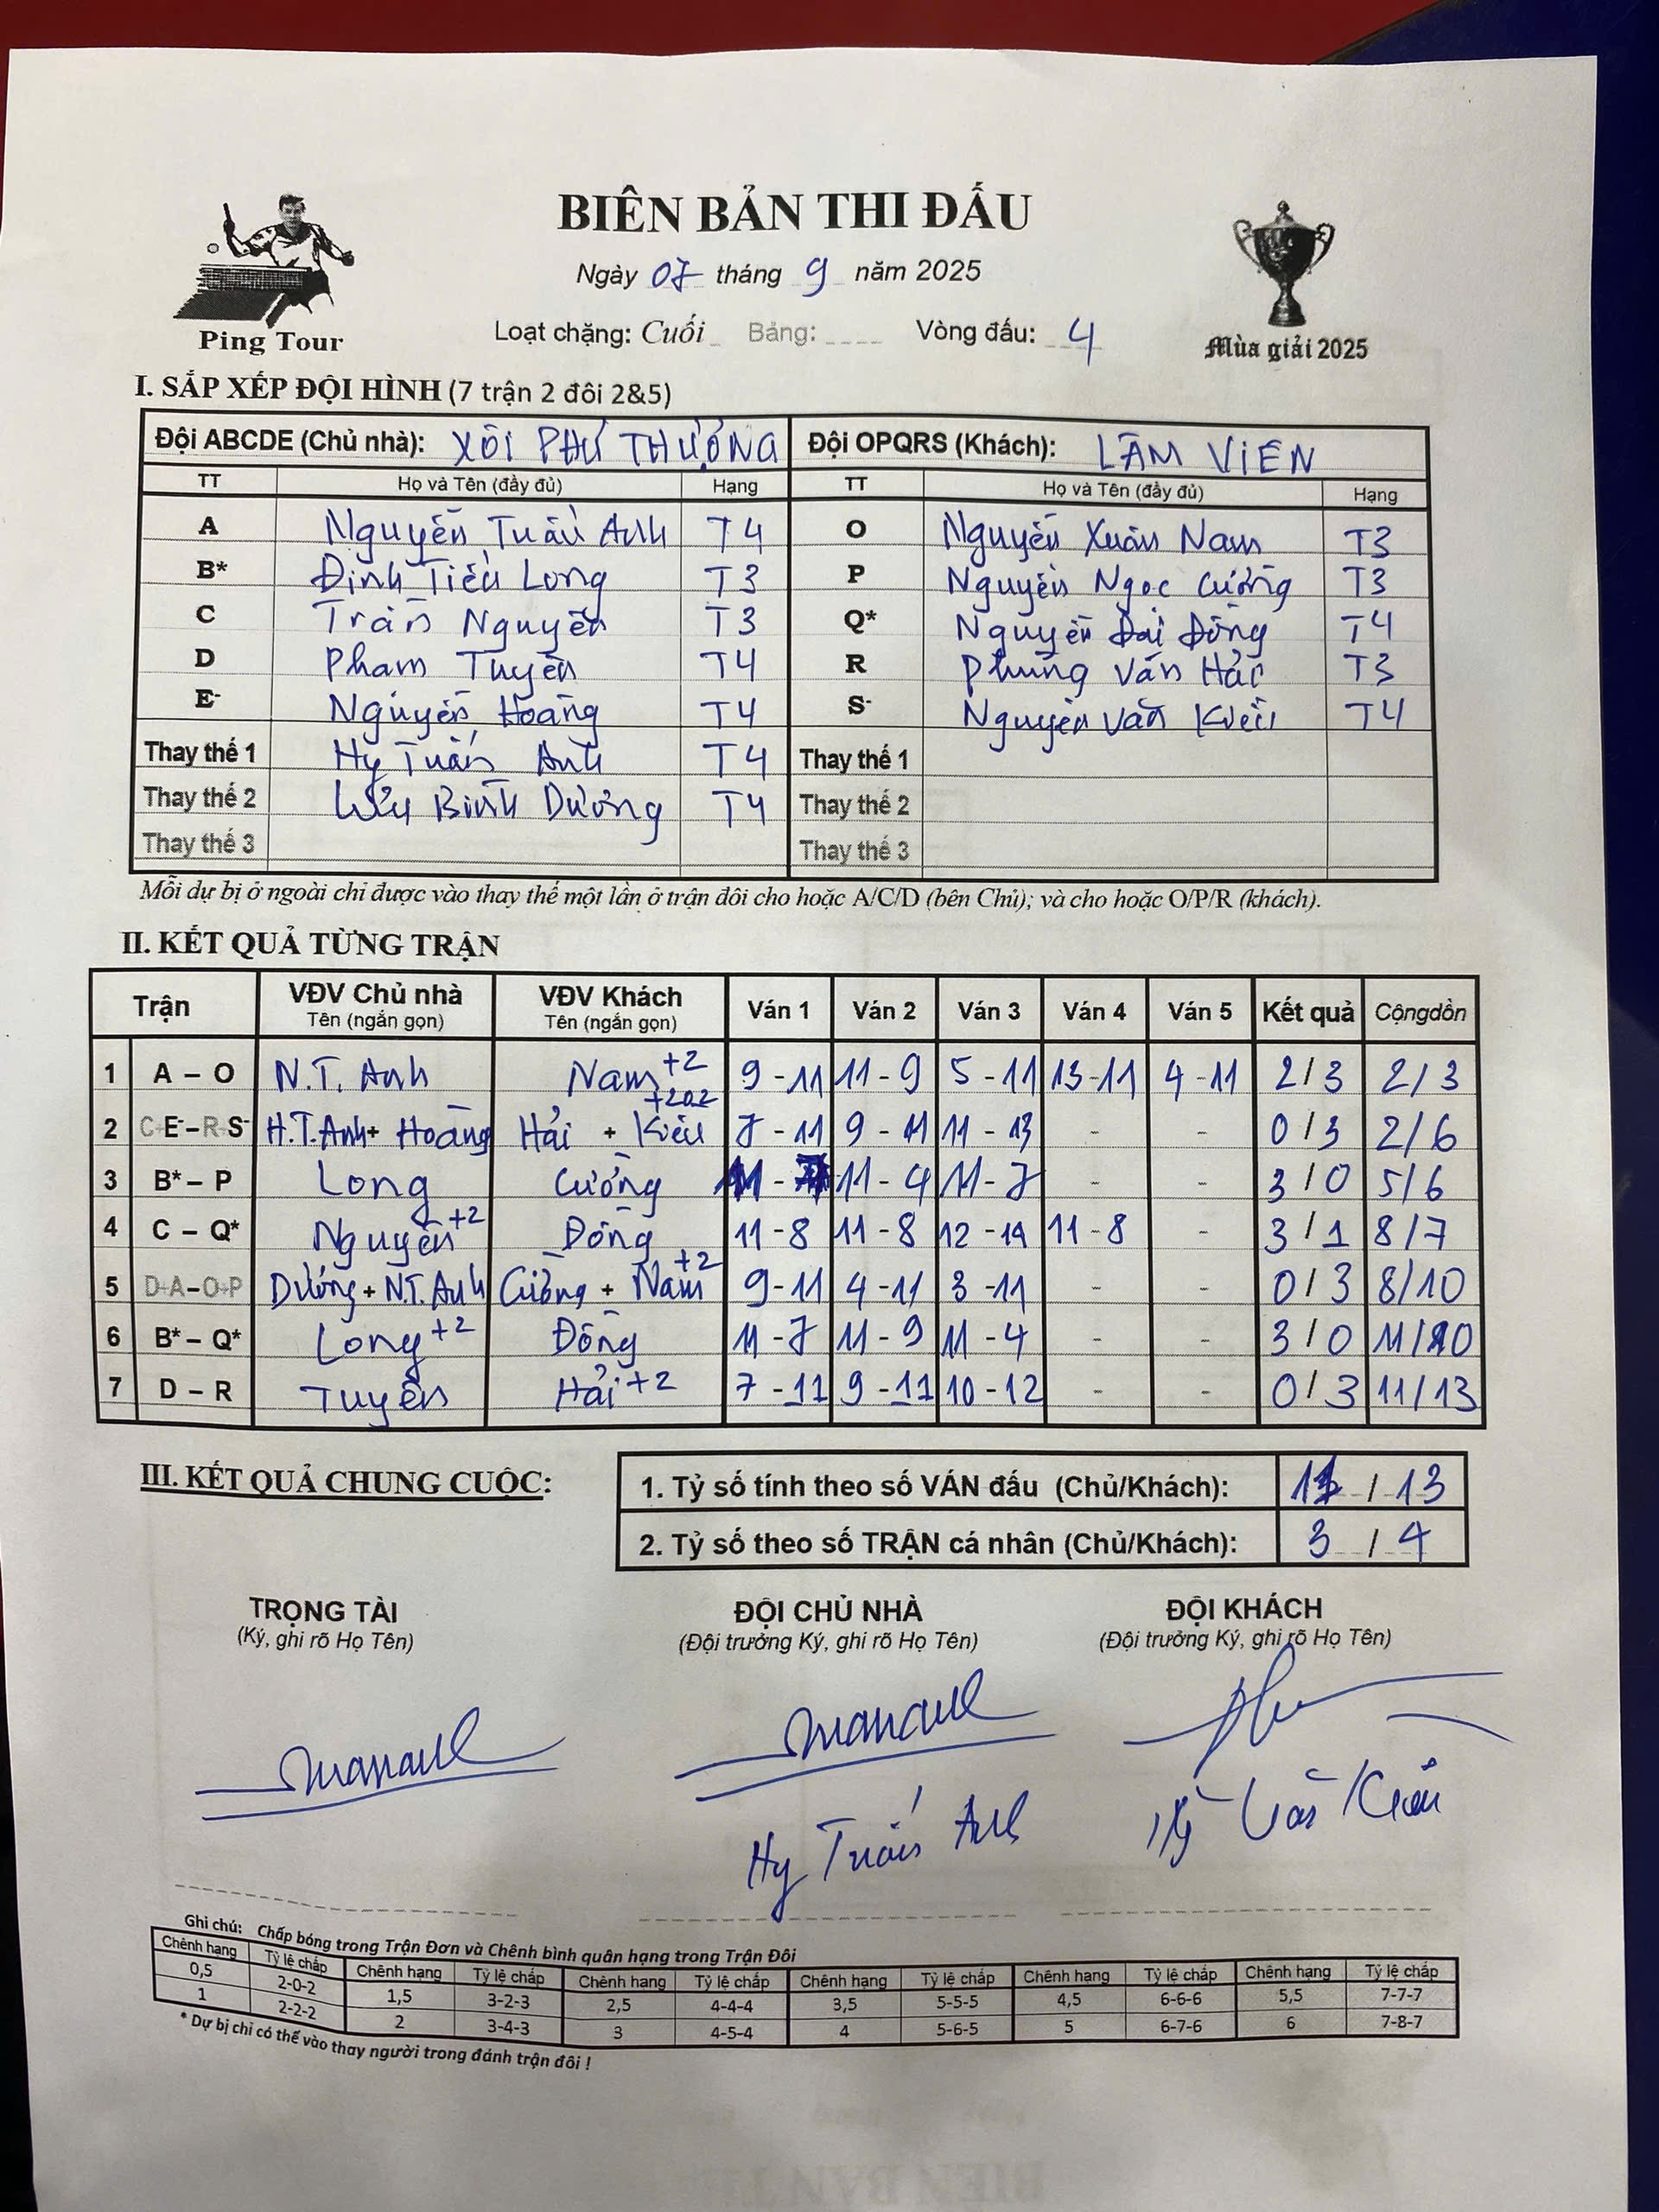 BIÊN BẢN THI ĐẤU
Ngày 07 tháng 9 năm 2025
Ping Tour
Loạt chặng: Cuối Bảng: Vòng đấu: 4
Mùa giải 2025
I. SẮP XẾP ĐỘI HÌNH (7 trận 2 đôi 2&5)
Đội ABCDE (Chủ nhà): XÔI PHÚ THƯỢNG Đội OPQRS (Khách): LÂM VIÊN
TT Họ và Tên (đầy đủ) Hạng TT Họ và Tên (đầy đủ) Hạng
A Nguyễn Tuấn Anh T4 O Nguyễn Xuân Nam T3
B* Đinh Tiểu Long T3 P Nguyễn Ngọc Cường T3
C Trần Nguyễn T3 Q* Nguyễn Đại Đồng T4
D Phạm Tuyển T4 R Phùng Văn Hải T3
E- Nguyễn Hoàng T4 S- Nguyễn Văn Kiều T4
Thay thế 1 Hy Tuấn Anh T4 Thay thế 1
Thay thế 2 Lưu Bình Dương T4 Thay thế 2
Thay thế 3 Thay thế 3
Mỗi dự bị ở ngoài chỉ được vào thay thế một lần ở trận đôi cho hoặc A/C/D (bên Chủ); và cho hoặc O/P/R (khách).
II. KẾT QUẢ TỪNG TRẬN
Trận VĐV Chủ nhà Tên (ngắn gọn) VĐV Khách Tên (ngắn gọn) Ván 1 Ván 2 Ván 3 Ván 4 Ván 5 Kết quả Cộngdồn
1 A – O N.T. Anh Nam +2 9-11 11-9 5-11 13-11 4-11 2/3 2/3
2 C+E-–R+S- H.T.Anh+ Hoàng Hải + Kiều +202 7-11 9-11 11-13 - - 0/3 2/6
3 B* – P Long Cường 11- 11-4 11-7 - - 3/0 5/6
4 C – Q* Nguyễn +2 Đồng 11-8 11-8 12-14 11-8 - 3/1 8/7
5 D+A–O+P Dương + N.T. Anh Cường + Nam +2 9-11 4-11 3-11 - - 0/3 8/10
6 B* – Q* Long +2 Đồng 11-7 11-9 11-4 - - 3/0 11/10
7 D – R Tuyển Hải +2 7-11 9-11 10-12 - - 0/3 11/13
III. KẾT QUẢ CHUNG CUỘC:
1. Tỷ số tính theo số VÁN đấu (Chủ/Khách): 11 / 13
2. Tỷ số theo số TRẬN cá nhân (Chủ/Khách): 3 / 4
TRỌNG TÀI ĐỘI CHỦ NHÀ ĐỘI KHÁCH
(Ký, ghi rõ Họ Tên) (Đội trưởng Ký, ghi rõ Họ Tên) (Đội trưởng Ký, ghi rõ Họ Tên)
Hy Tuấn Anh Văn Kiều
Ghi chú: Chấp bóng trong Trận Đơn và Chênh bình quân hạng trong Trận Đôi
Chênh hạng Tỷ lệ chấp Chênh hạng Tỷ lệ chấp Chênh hạng Tỷ lệ chấp Chênh hạng Tỷ lệ chấp Chênh hạng Tỷ lệ chấp Chênh hạng Tỷ lệ chấp
0,5 2-0-2 1,5 3-2-3 2,5 4-4-4 3,5 5-5-5 4,5 6-6-6 5,5 7-7-7
1 2-2-2 2 3-4-3 3 4-5-4 4 5-6-5 5 6-7-6 6 7-8-7
* Dự bị chỉ có thể vào thay người trong đánh trận đôi !